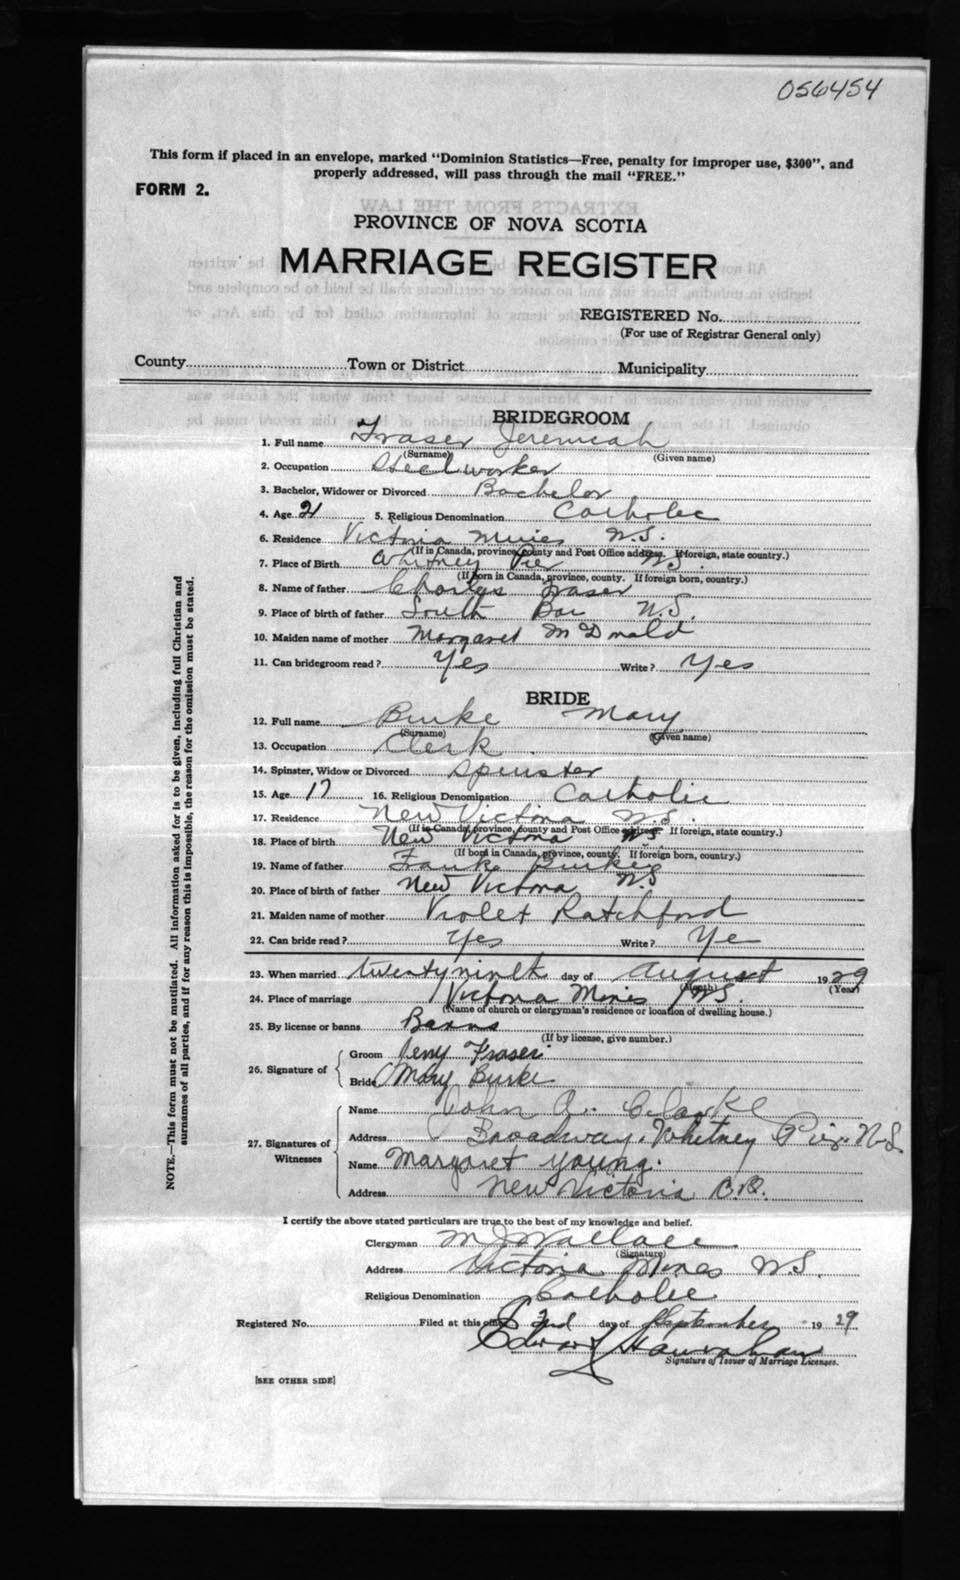 056454
This form if placed in an envelope, marked "Dominion Statistics—Free, penalty for improper use, $300", and
properly addressed, will pass through the mail "FREE."
FORM 2.
PROVINCE OF NOVA SCOTIA
MARRIAGE REGISTER
REGISTERED No.
(For use of Registrar General only)
County Town or District Municipality
BRIDEGROOM
1. Full name Fraser Jeremiah
(Surname) (Given name)
2. Occupation Steelworker
3. Bachelor, Widower or Divorced Bachelor
4. Age 21 5. Religious Denomination Catholic
6. Residence Victoria Mines N.S.
(If in Canada, province, county and Post Office address. If foreign, state country.)
7. Place of Birth Whitney Pier N.S.
(If born in Canada, province, county. If foreign born, country.)
8. Name of father Charles Fraser
9. Place of birth of father South Bar N.S.
10. Maiden name of mother Margaret McDonald
11. Can bridegroom read? Yes Write? Yes
BRIDE
12. Full name Burke Mary
(Surname) (Given name)
13. Occupation Clerk.
14. Spinster, Widow or Divorced Spinster
15. Age 17 16. Religious Denomination Catholic
17. Residence New Victoria N.S.
(If in Canada, province, county and Post Office address. If foreign, state country.)
18. Place of birth New Victoria N.S.
(If born in Canada, province, county. If foreign born, country.)
19. Name of father Frank Burke
20. Place of birth of father New Victoria N.S
21. Maiden name of mother Violet Ratchford
22. Can bride read? Yes Write? Ye
23. When married twentyninth day of August 1929
(Month) (Year)
24. Place of marriage Victoria Mines N.S.
(Name of church or clergyman's residence or location of dwelling house.)
25. By license or banns Banns
(If by license, give number.)
26. Signature of
Groom Jerry Fraser
Bride Mary Burke
27. Signatures of Witnesses
Name John A. Clarke
Address Broadway. Whitney Pier. N.S.
Name Margaret Young.
Address New Victoria C.B.
I certify the above stated particulars are true to the best of my knowledge and belief.
Clergyman M J Wallace
(Signature)
Address Victoria Mines N.S.
Religious Denomination Catholic
Registered No. Filed at this office 2nd day of September 1929
Edward Hanrahan
Signature of Issuer of Marriage Licenses.
[SEE OTHER SIDE]
NOTE.—This form must not be mutilated. All information asked for is to be given, including full Christian and
surnames of all parties, and if for any reason this is impossible, the reason for the omission must be stated.